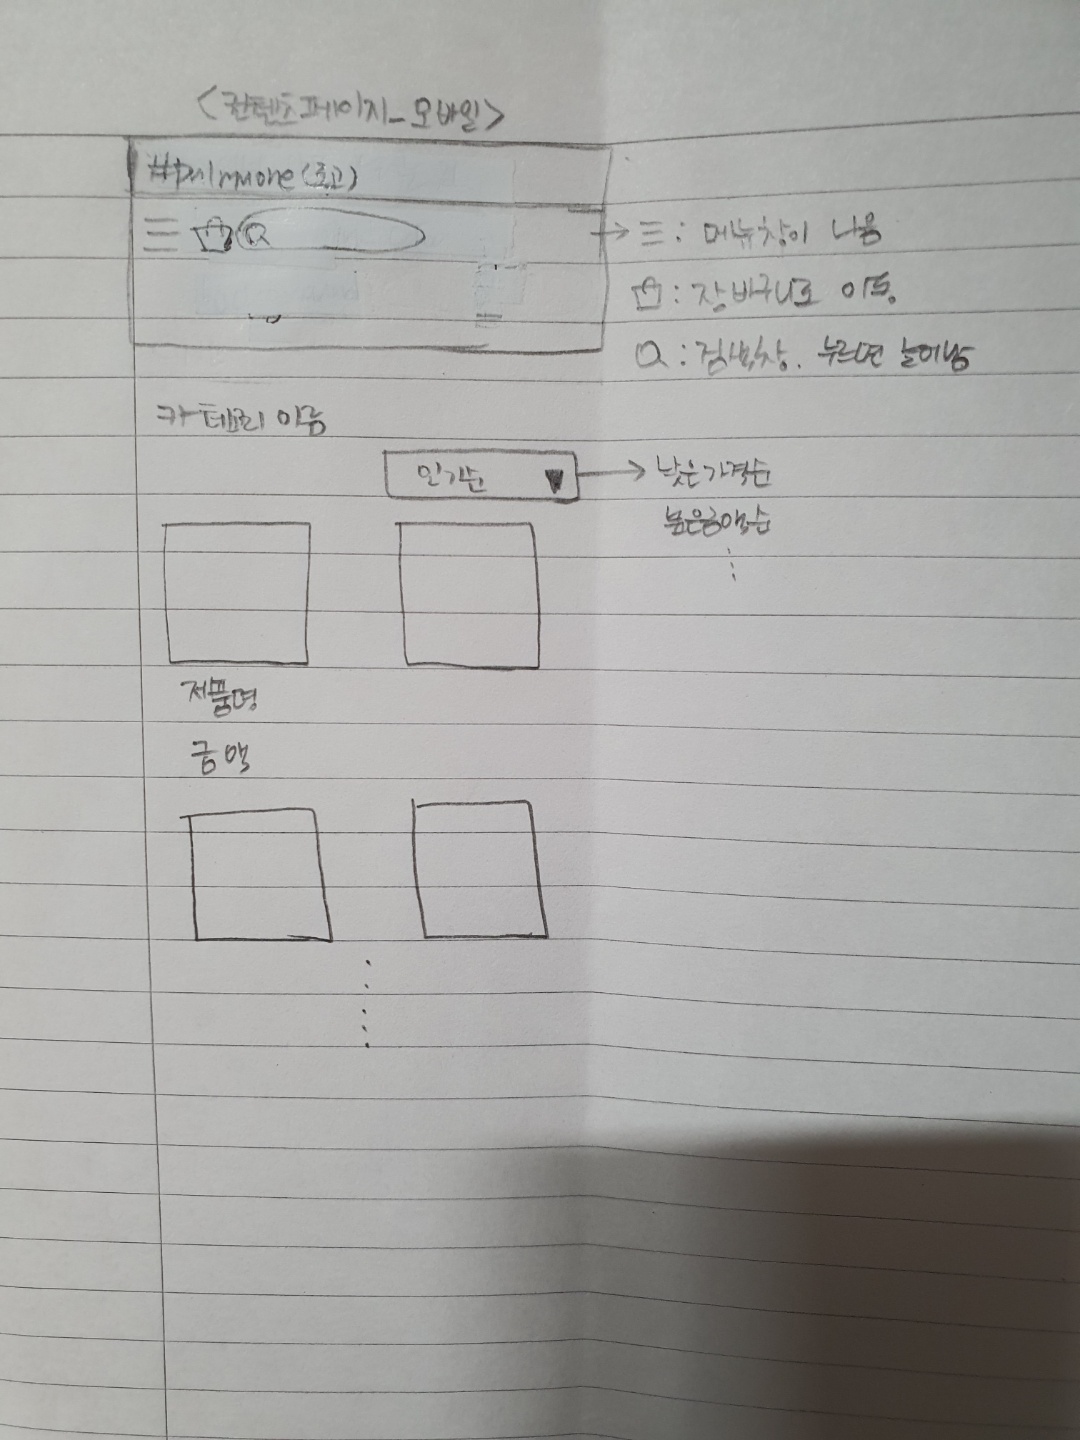 <컨텐츠페이지_모바일>
(로고)
☰ : 메뉴창이 나옴
: 장바구니로 이동.
Q : 검색창. 누르면 늘어남
카테고리 이름
인기순 ▼
낮은가격순
높은금액순
제품명
금액